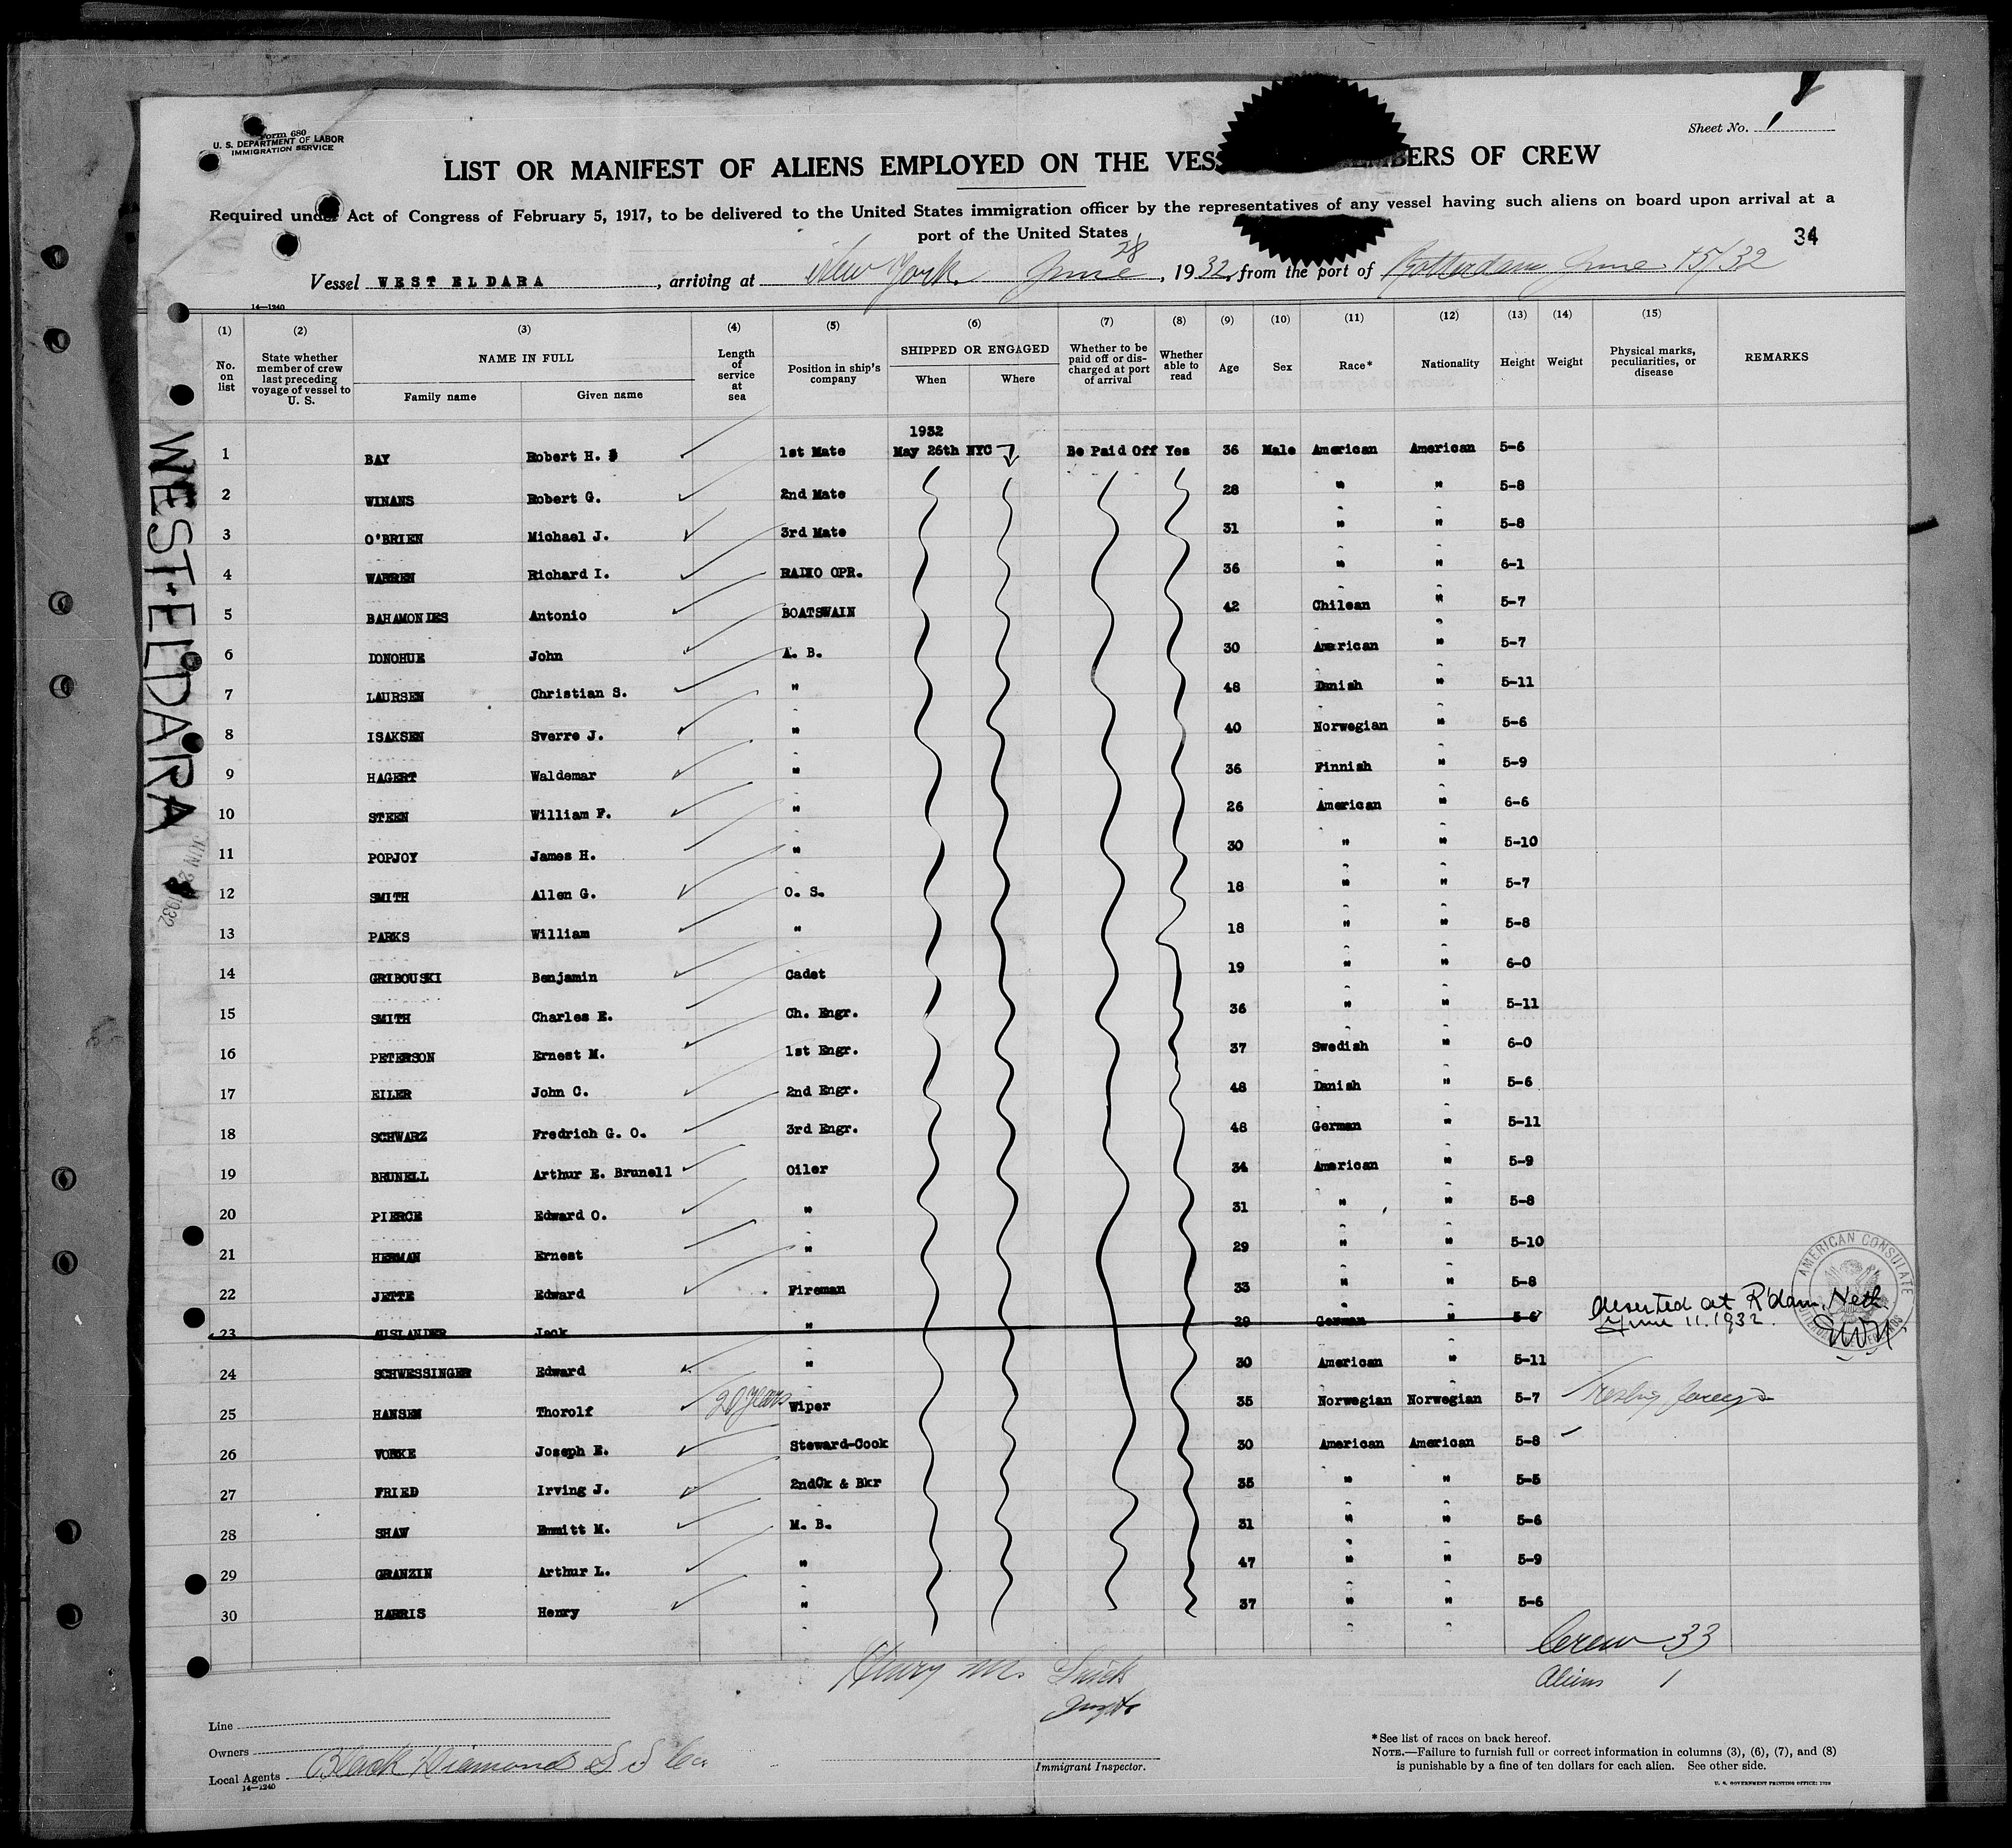 Form 680
U. S. DEPARTMENT OF LABOR
IMMIGRATION SERVICE
Sheet No. 1
LIST OR MANIFEST OF ALIENS EMPLOYED ON THE VES MBERS OF CREW
Required under Act of Congress of February 5, 1917, to be delivered to the United States immigration officer by the representatives of any vessel having such aliens on board upon arrival at a
port of the United States
34
Vessel WEST ELDARA, arriving at New York. June 28, 1932, from the port of Rotterdam June 15/32
14—1240
(1) (2) (3) (4) (5) (6) (7) (8) (9) (10) (11) (12) (13) (14) (15)
No. on list State whether member of crew last preceding voyage of vessel to U. S. NAME IN FULL Family name Given name Length of service at sea Position in ship's company SHIPPED OR ENGAGED When Where Whether to be paid off or discharged at port of arrival Whether able to read Age Sex Race* Nationality Height Weight Physical marks, peculiarities, or disease REMARKS
1932
1 BAY Robert H. 1st Mate May 26th NYC Be Paid Off Yes 36 Male American American 5-6
2 WINANS Robert G. 2nd Mate 28 " " 5-8
3 O'BRIEN Michael J. 3rd Mate 31 " " 5-8
4 WARREN Richard I. RADIO OPR. 36 " " 6-1
5 BAHAMONDES Antonio BOATSWAIN 42 Chilean " 5-7
6 DONOHUE John A. B. 30 American " 5-7
7 LAURSEN Christian S. " 48 Danish " 5-11
8 ISAKSEN Sverre J. " 40 Norwegian " 5-6
9 HAGERT Waldemar " 36 Finnish " 5-9
10 STEEN William F. " 26 American " 6-6
11 POPJOY James H. " 30 " " 5-10
12 SMITH Allen G. O. S. 18 " " 5-7
13 PARKS William " 18 " " 5-8
14 GRIBOUSKI Benjamin Cadet 19 " " 6-0
15 SMITH Charles E. Ch. Engr. 36 " " 5-11
16 PETERSON Ernest M. 1st Engr. 37 Swedish " 6-0
17 EILER John C. 2nd Engr. 48 Danish " 5-6
18 SCHWARZ Fredrich G. O. 3rd Engr. 48 German " 5-11
19 BRUNELL Arthur E. Brunell Oiler 34 American " 5-9
20 PIERCE Edward O. " 31 " " 5-8
21 HERMAN Ernest " 29 " " 5-10
22 JETTE Edward Fireman 33 " " 5-8
23 AUSLANDER Jack " 29 German " 5-6 deserted at R'dam, Neth.
June 11, 1932.
AMERICAN CONSULATE
24 SCHWESSINGER Edward " 30 American " 5-11
25 HANSEN Thorolf 20 years Wiper 35 Norwegian Norwegian 5-7
26 VORKE Joseph E. Steward-Cook 30 American American 5-8
27 FRIED Irving J. 2ndCk & Bkr 35 " " 5-5
28 SHAW Emmitt M. M. B. 31 " " 5-6
29 GRANZIN Arthur L. " 47 " " 5-9
30 HARRIS Henry " 37 " " 5-6
Crew 33
Aliens 1
Line
Owners
Local Agents Black Diamond S S Co.
14—1240
Immigrant Inspector.
*See list of races on back hereof.
NOTE.—Failure to furnish full or correct information in columns (3), (6), (7), and (8)
is punishable by a fine of ten dollars for each alien. See other side.
U. S. GOVERNMENT PRINTING OFFICE: 1929
WEST·ELDARA
1932